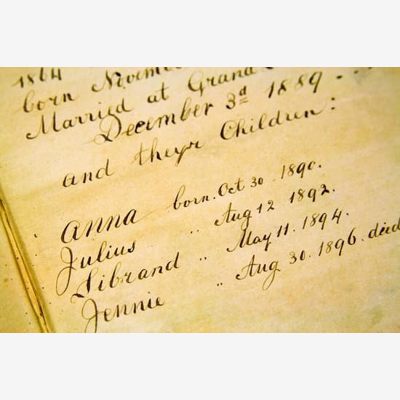 1864
born Novem
Married at Grand
December 3d 1889 . .
and theyr Children:
Anna born. Oct 30. 1890.
Julius " Aug 12 1892.
Sibrand " May 11. 1894.
Jennie " Aug 30. 1896. died